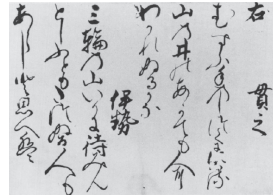 右　貫之
むすふ手のしつくに濁る
山の井のあかても人に
わかれぬるかな
伊勢
三輪の山いかに待みん
としふともたつぬる人も
あらしと思へは